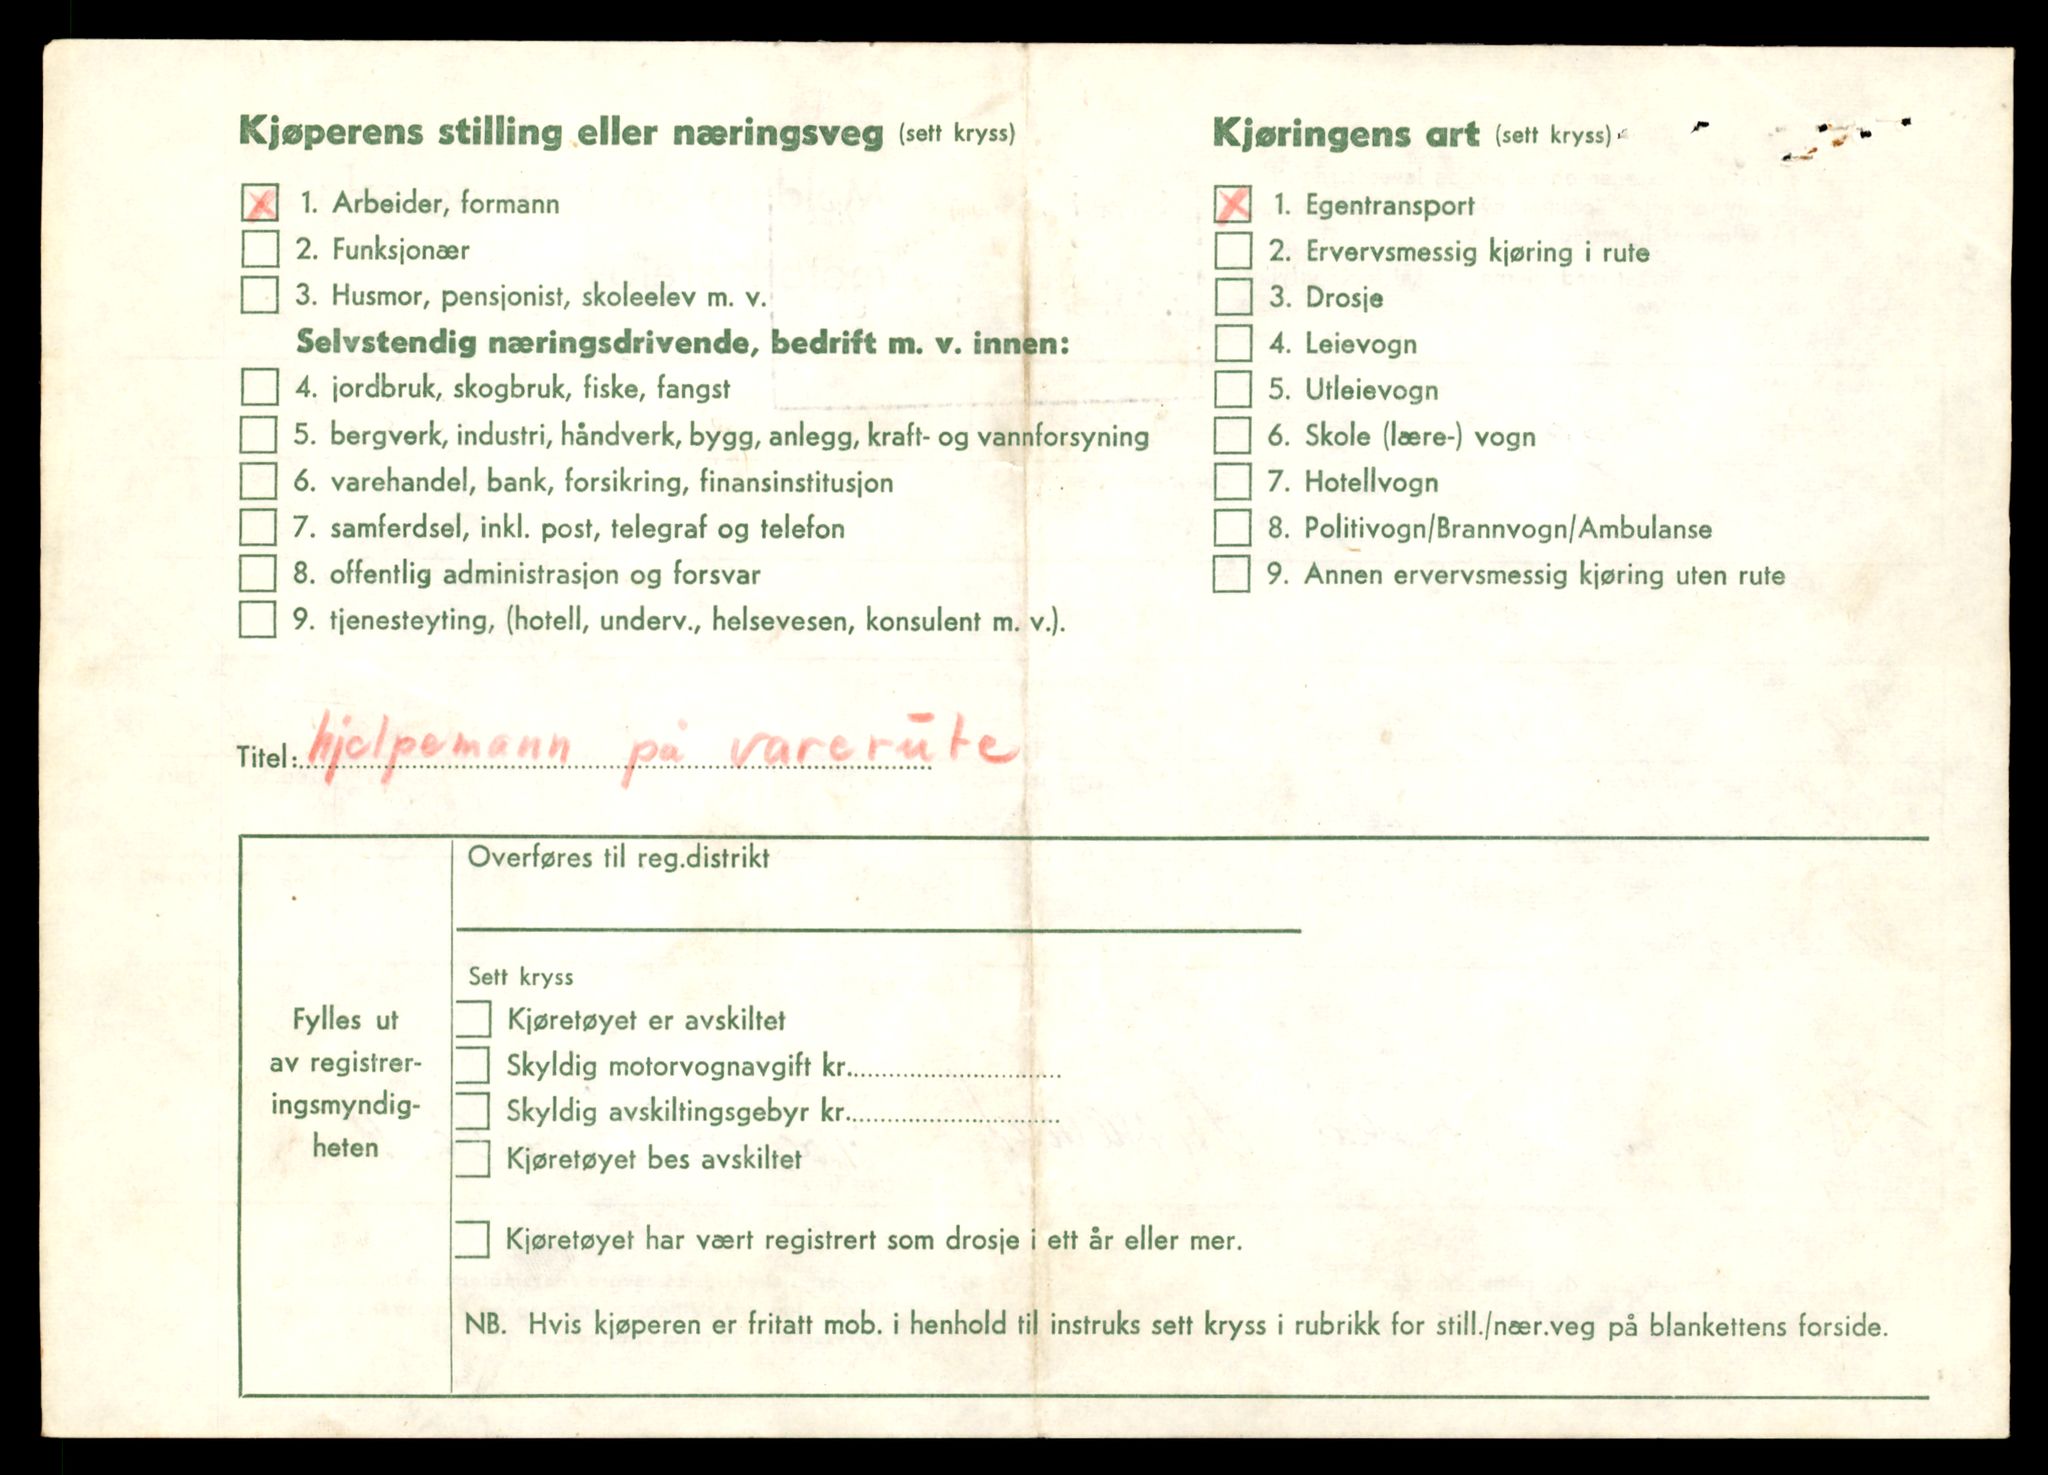 Kjøperens stilling eller næringsveg (sett kryss)
1. Arbeider, formann
2. Funksjonær
3. Husmor, pensjonist, skoleelev m. v.
Selvstendig næringsdrivende, bedrift m. v. innen:
4. jordbruk, skogbruk, fiske, fangst
5. bergverk, industri, håndverk, bygg, anlegg, kraft- og vannforsyning
6. varehandel, bank, forsikring, finansinstitusjon
7. samferdsel, inkl. post, telegraf og telefon
8. offentlig administrasjon og forsvar
9. tjenesteyting, (hotell, underv., helsevesen, konsulent m. v.).
Kjøringens art (sett kryss)
1. Egentransport
2. Ervervsmessig kjøring i rute
3. Drosje
4. Leievogn
5. Utleievogn
6. Skole (lære-) vogn
7. Hotellvogn
8. Politivogn/Brannvogn/Ambulanse
9. Annen ervervsmessig kjøring uten rute
Titel: hjelpemann på varerute
Fylles ut
av registrer-
ingsmyndig-
heten
Overføres til reg.distrikt
Sett kryss
Kjøretøyet er avskiltet
Skyldig motorvognavgift kr.
Skyldig avskiltingsgebyr kr.
Kjøretøyet bes avskiltet
Kjøretøyet har vært registrert som drosje i ett år eller mer.
NB. Hvis kjøperen er fritatt mob. i henhold til instruks sett kryss i rubrikk for still./nær.veg på blankettens forside.